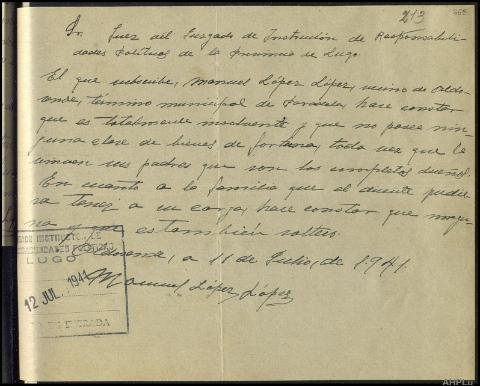 213
Sr. Juez del Juzgado de Instrucción de Responsabili-
dades Políticas de la Provincia de Lugo.
El que subscribe, Manuel López López, vecino de
término municipal de Paradela, hace constar
que es totalmente insolvente y que no posee nin-
guna clase de bienes de fortuna, toda vez que le
viven sus padres que son los completos dueños.
En cuanto a la familia que el dicente pudie-
ra tener a su cargo, hace constar que ningu-
na y que es también soltero.
a 11 de Julio, de 1941.
Manuel López López
LUGO
12 JUL. 1941
ENTRADA
AHPLu